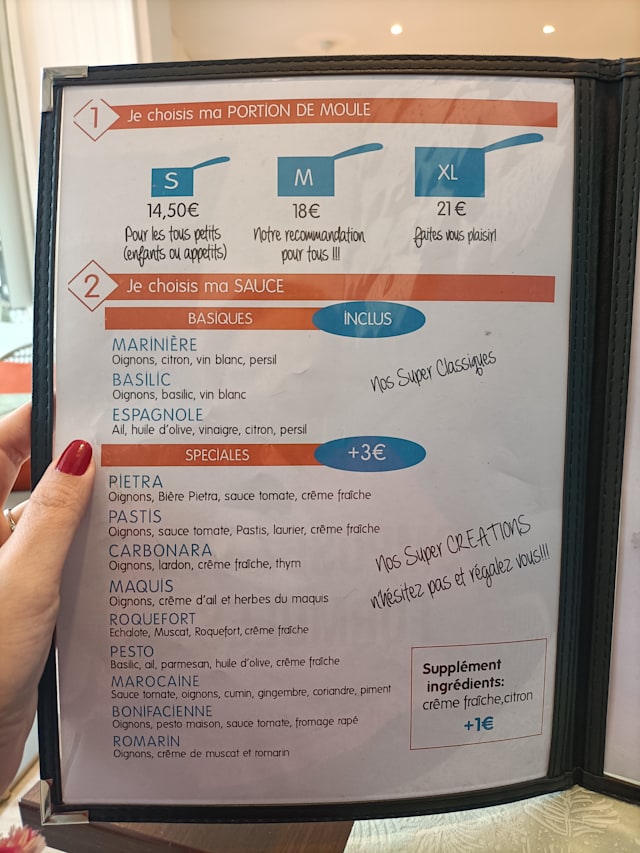 1 Je choisis ma PORTION DE MOULE
S M XL
14,50€ 18€ 21€
Pour les tous petits Notre recommandation faites vous plaisir!
(enfants ou appetits) pour tous !!!
2 Je choisis ma SAUCE
BASIQUES INCLUS
MARINIÈRE
Oignons, citron, vin blanc, persil
BASILIC
Oignons, basilic, vin blanc
nos Super Classiques
ESPAGNOLE
Ail, huile d'olive, vinaigre, citron, persil
SPECIALES +3€
PIETRA
Oignons, Bière Pietra, sauce tomate, crême fraîche
PASTIS
Oignons, sauce tomate, Pastis, laurier, crême fraîche
CARBONARA
Oignons, lardon, crême fraîche, thym
nos Super CREATIONS
n'hésitez pas et régalez vous!!!
MAQUIS
Oignons, crême d'ail et herbes du maquis
ROQUEFORT
Echalote, Muscat, Roquefort, crême fraîche
PESTO
Basilic, ail, parmesan, huile d'olive, crême fraîche
MAROCAINE
Sauce tomate, oignons, cumin, gingembre, coriandre, piment
BONIFACIENNE
Oignons, pesto maison, sauce tomate, fromage rapé
ROMARIN
Oignons, crême de muscat et romarin
Supplément
ingrédients:
crême fraîche,citron
+1€